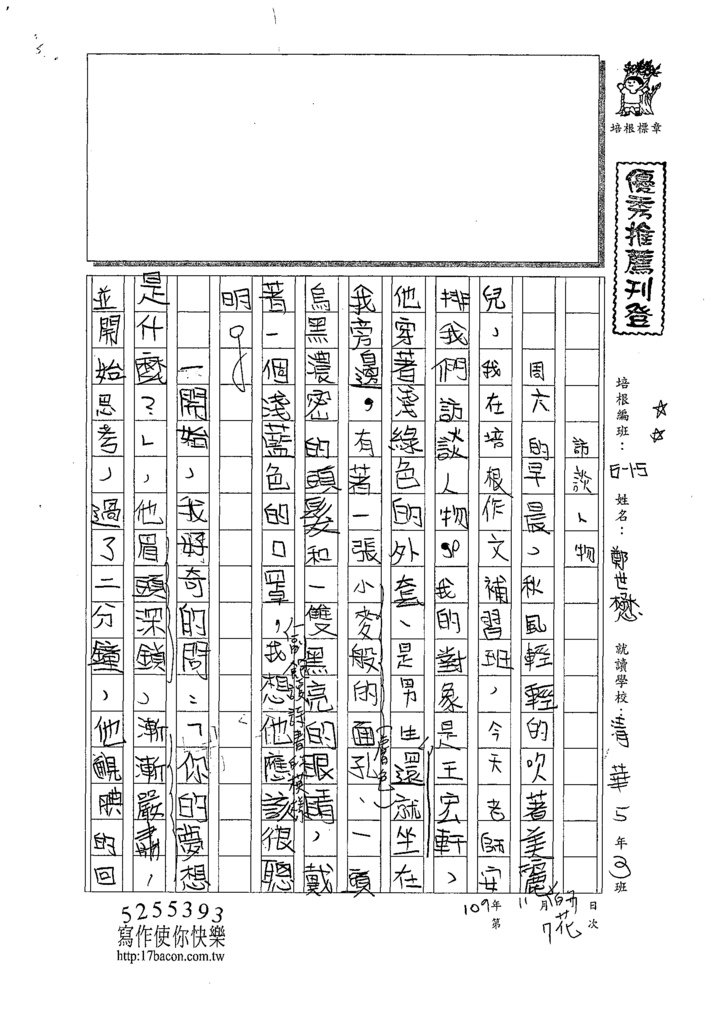 培根標章
優秀推薦刊登
培根編班：5-15 姓名：鄭世懋 就讀學校：清華5年3班
109年11月7日 第 次
訪談人物
周六的早晨，秋風輕輕的吹著美麗
兒，我在培根作文補習班，今天老師安
排我們訪談人物。我的對象是王宏軒，
他穿著淺綠色的外套、是男生還就坐在
我旁邊，有著一張小麥般的面孔、一頭
膚色
烏黑濃密的頭髮和一雙黑亮的眼睛，戴
著一個淺藍色的口罩，我想他應該很聰
明。
一開始，我好奇的問：「你的夢想
是什麼？」，他眉頭深鎖，漸漸嚴肅，
並開始思考，過了二分鐘，他靦腆的回
5255393
寫作使你快樂
http:17bacon.com.tw